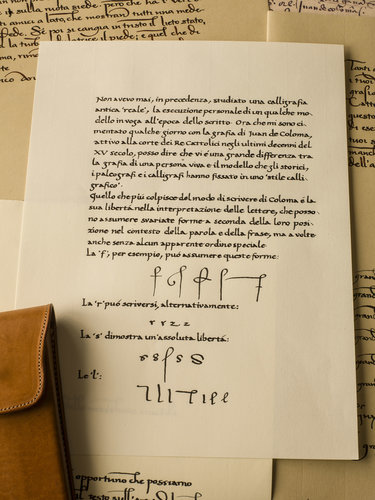 sulla ruota médie. Però che ha l'ver
amici a lato, che mostran tutti una mede-
fede. Sé poi si cangia in tristo il lieto stato,
la turb
il piede; e quel che di
Non avevo mai, in precedenza, studiato una calligrafia
antica 'reale', la esecuzione personale di un qualche mo-
dello in voga all'epoca dello scritto. Ora che mi sono ci-
mentato qualche giorno con la grafia di Juan de Coloma,
attivo alla corte dei Re Cattolici negli ultimi decenni del
XV secolo, posso dire che vi è una grande differenza tra
la grafia di una persona viva e il modello che gli storici,
i paleografi e i calligrafi hanno fissato in uno 'stile calli
grafico'.
Quello che più colpisce del modo di scrivere di Coloma è la
sua libertà nella interpretazione delle lettere, che posso-
no assumere svariate forme a seconda della loro posi-
zione nel contesto della parola e della frase, ma a volte
anche senza alcun apparente ordine speciale.
La 'f', per esempio, può assumere queste forme:
f f f f f
La 'r' può scriversi, alternativamente:
r r z z
La 's' dimostra un'assoluta libertà:
s s f s S
Le 'l':
l l l l l l l
opportuno che possiamo